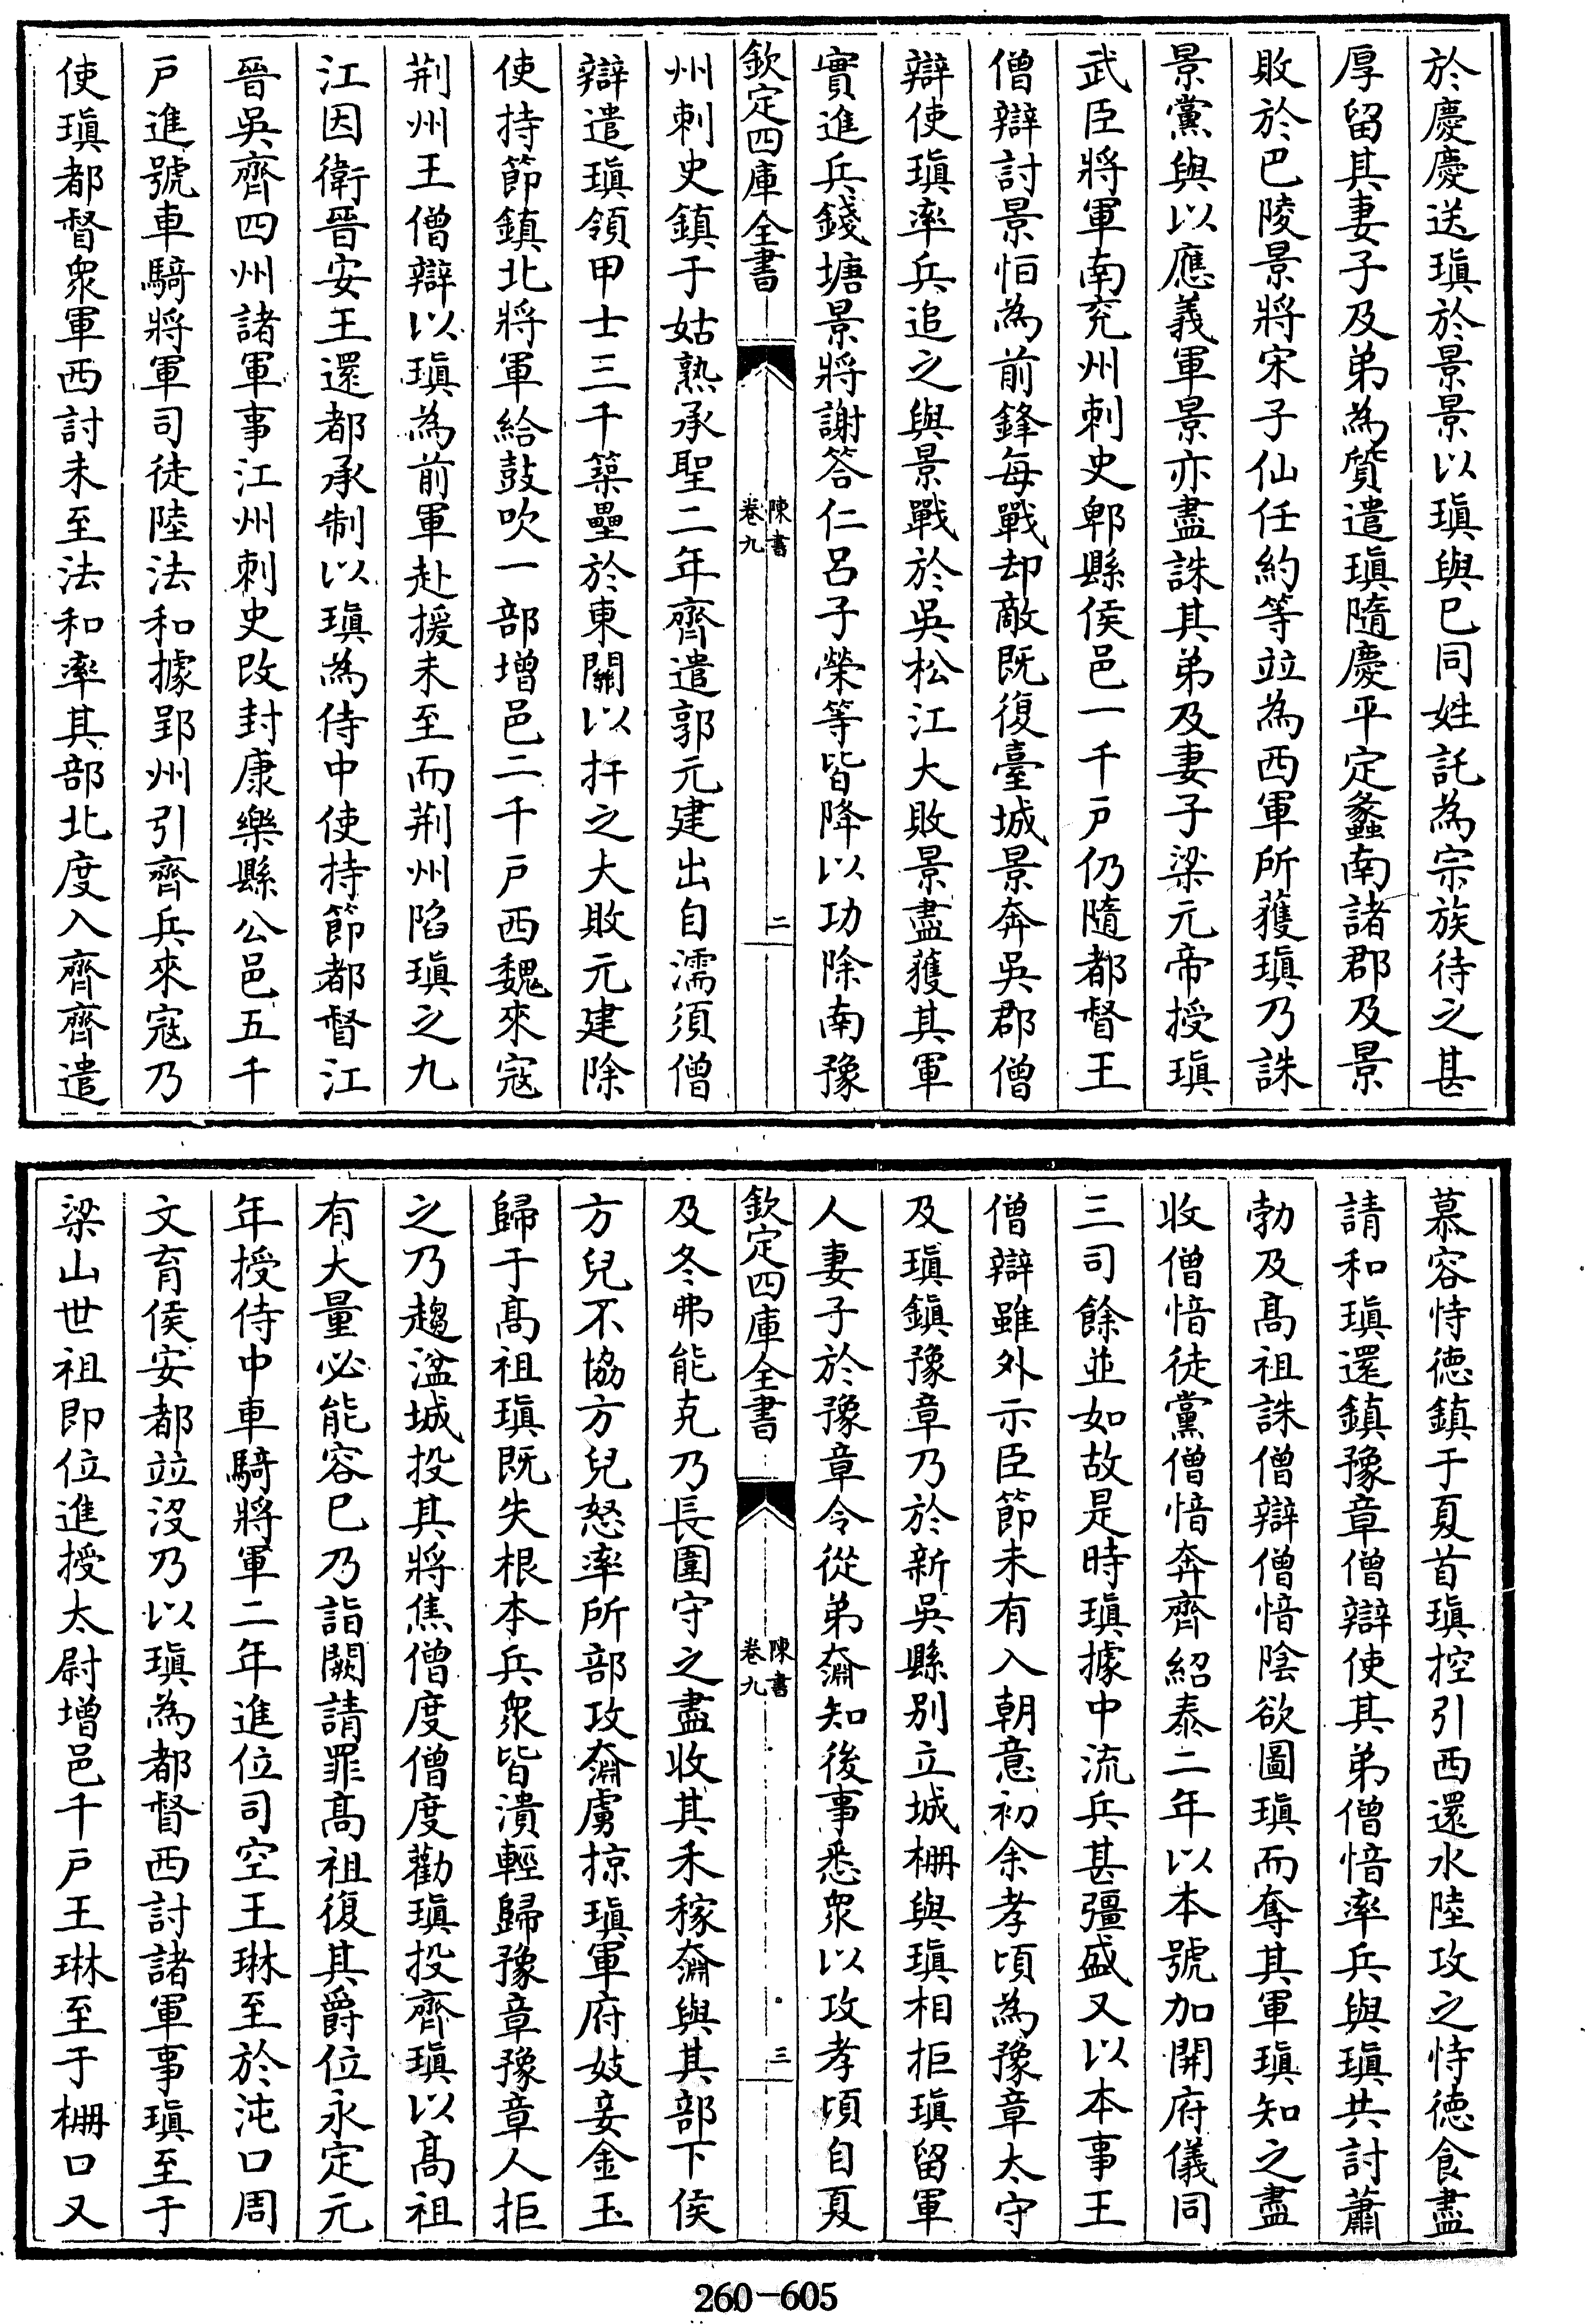 於慶慶送瑱於景景以瑱與已同姓託為宗族待之甚
厚留其妻子及弟為質遣瑱隨慶平定蠡南諸郡及景
敗於巴陵景將宋子仙任約等竝為西軍所獲瑱乃誅
景黨與以應義軍景亦盡誅其弟及妻子梁元帝授瑱
武臣將軍南兗州刺史鄲縣侯邑一千戶仍隨都督王
僧辯討景恒為前鋒每戰却敵既復臺城景奔吳郡僧
辯使瑱率兵追之與景戰於吳松江大敗景盡獲其軍
實進兵錢塘景將謝答仁呂子榮等皆降以功除南豫
欽定四庫全書
陳書
卷九
二
州刺史鎮于姑熟承聖二年齊遣郭元建出自濡須僧
辯遣瑱領甲士三千築壘於東關以扞之大敗元建除
使持節鎮北將軍給鼓吹一部增邑二千戶西魏來寇
荆州王僧辯以瑱為前軍赴援未至而荆州陷瑱之九
江因衛晉安王還都承制以瑱為侍中使持節都督江
晉吳齊四州諸軍事江州刺史改封康樂縣公邑五千
戶進號車騎將軍司徒陸法和據郢州引齊兵來寇乃
使瑱都督衆軍西討未至法和率其部北度入齊齊遣
慕容恃德鎮于夏首瑱控引西還水陸攻之恃德食盡
請和瑱還鎮豫章僧辯使其弟僧愔率兵與瑱共討蕭
勃及髙祖誅僧辯僧愔陰欲圖瑱而奪其軍瑱知之盡
收僧愔徒黨僧愔奔齊紹泰二年以本號加開府儀同
三司餘並如故是時瑱據中流兵甚彊盛又以本事王
僧辯雖外示臣節未有入朝意初余孝頃為豫章太守
及瑱鎮豫章乃於新吳縣别立城柵與瑱相拒瑱留軍
人妻子於豫章令從弟奫知後事悉衆以攻孝頃自夏
欽定四庫全書
陳書
卷九
三
及冬弗能克乃長圍守之盡收其禾稼奫與其部下侯
方兒不協方兒怒率所部攻奫虜掠瑱軍府妓妾金玉
歸于髙祖瑱既失根本兵衆皆潰輕歸豫章豫章人拒
之乃趨湓城投其將焦僧度僧度勸瑱投齊瑱以髙祖
有大量必能容已乃詣闕請罪髙祖復其爵位永定元
年授侍中車騎將軍二年進位司空王琳至於沌口周
文育侯安都竝沒乃以瑱為都督西討諸軍事瑱至于
梁山世祖即位進授太尉增邑千戶王琳至于柵口又
260-605